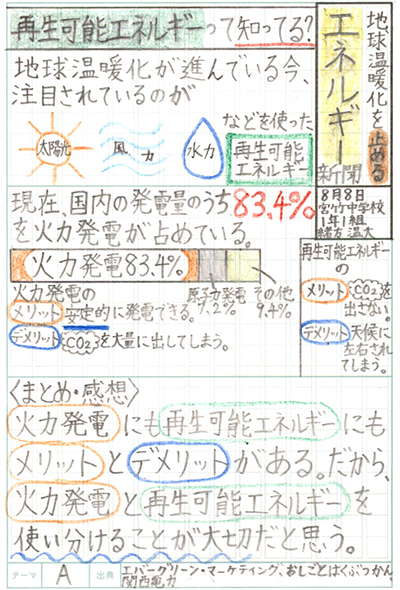 地球温暖化を止める
エネルギー
新聞
8月8日
宮竹中学校
1年1組
緒方 温大
再生可能エネルギーって知ってる?
地球温暖化が進んでいる今、
注目されているのが
太陽光
風力
水力
などを使った
再生可能
エネルギー
現在、国内の発電量のうち83.4%
を火力発電が占めている。
火力発電83.4%
原子力発電
7.2%
その他
9.4%
火力発電の
メリット 安定的に発電できる。
デメリット CO2を大量に出してしまう。
再生可能エネルギー
の
メリット CO2を
出さない。
デメリット 天候に
左右され
てしまう。
〈まとめ・感想〉
火力発電にも再生可能エネルギーにも
メリットとデメリットがある。だから、
火力発電と再生可能エネルギーを
使い分けることが大切だと思う。
テーマ A 出典 エバーグリーン・マーケティング、おしごとはくぶつかん、
関西電力